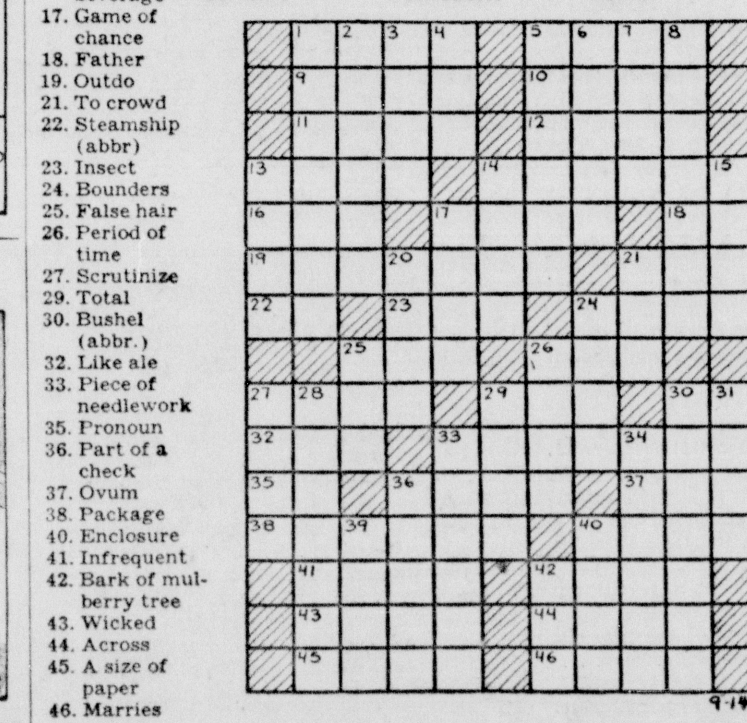 17. Game of
chance
18. Father
19. Outdo
21. To crowd
22. Steamship
(abbr)
23. Insect
24. Bounders
25. False hair
26. Period of
time
27. Scrutinize
29. Total
30. Bushel
(abbr.)
32. Like ale
33. Piece of
needlework
35. Pronoun
36. Part of a
check
37. Ovum
38. Package
40. Enclosure
41. Infrequent
42. Bark of mul-
berry tree
43. Wicked
44. Across
45. A size of
paper
46. Marries
1 2 3 4 5 6 7 8
9 10
11 12
13 14 15
16 17 18
19 20 21
22 23 24
25 26
27 28 29 30 31
32 33 34
35 36 37
38 39 40
41 42
43 44
45 46
9-14